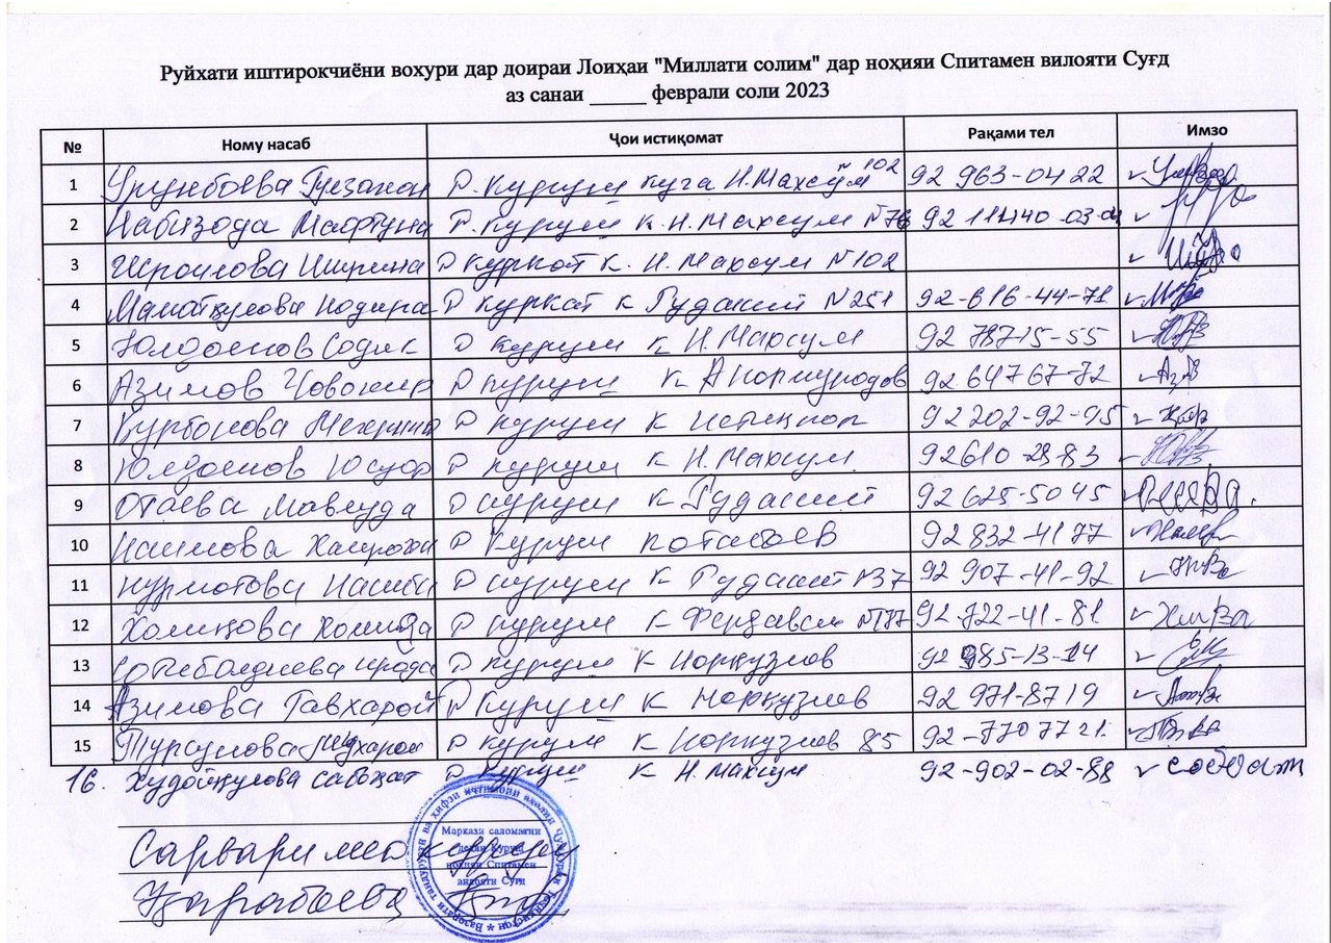 Руйхати иштирокчиёни вохури дар доираи Лоиҳаи "Миллати солим" дар ноҳияи Спитамен вилояти Суғд
аз санаи ______ феврали соли 2023
№ Ному насаб Ҷои истиқомат Рақами тел Имзо
1 Урунбоева Гулзахон Д. Куруш куча Н. Махсум 102 92 963-04 22
2 Набизода Мафтуна Д. Куруш к. Н. Махсум №76 92
3 Исроилова Д Куркат к. Н. Махсум №102
4 Маматкулова Нодира Д куркат к Рудакий №251 92-616-44-71
5 Юлдошов Содик Д куруш к Н. Махсум 92 78715-55
6 Азимов Ҷовохир Д куруш к 92 64767-72
7 Қурбонова Д куруш к Истиқлол 92 202-92-95
8 Юлдошов Юсуф Д куруш к Н. Махсум 92610-28-83
9 Отаева Мавлуда Д куруш к Рудакий 92 625-50 45
10 Наимова Д Куруш 92 832-41 77
11 Нурматова Насиба Д куруш к Рудакий №37 92 907-41-92
12 Холиқова Холида Д куруш к Фирдавси 92-722-41-81
13 Д куруш к Норкузиев 92 985-13-14
14 Азимова Гавхарой Д Куруш к Норкузиев 92 971-8719
15 Турсунова Д куруш к Норкузиев 85 92-770 77 21
16. Худойқулова сабохат Д куруш к Н. Махсум 92-902-02-88 сабохат
Сарвари Куруш
Қарабоева
Маркази саломатии
деҳаи Куруш
ноҳияи Спитамен
вилояти Суғд